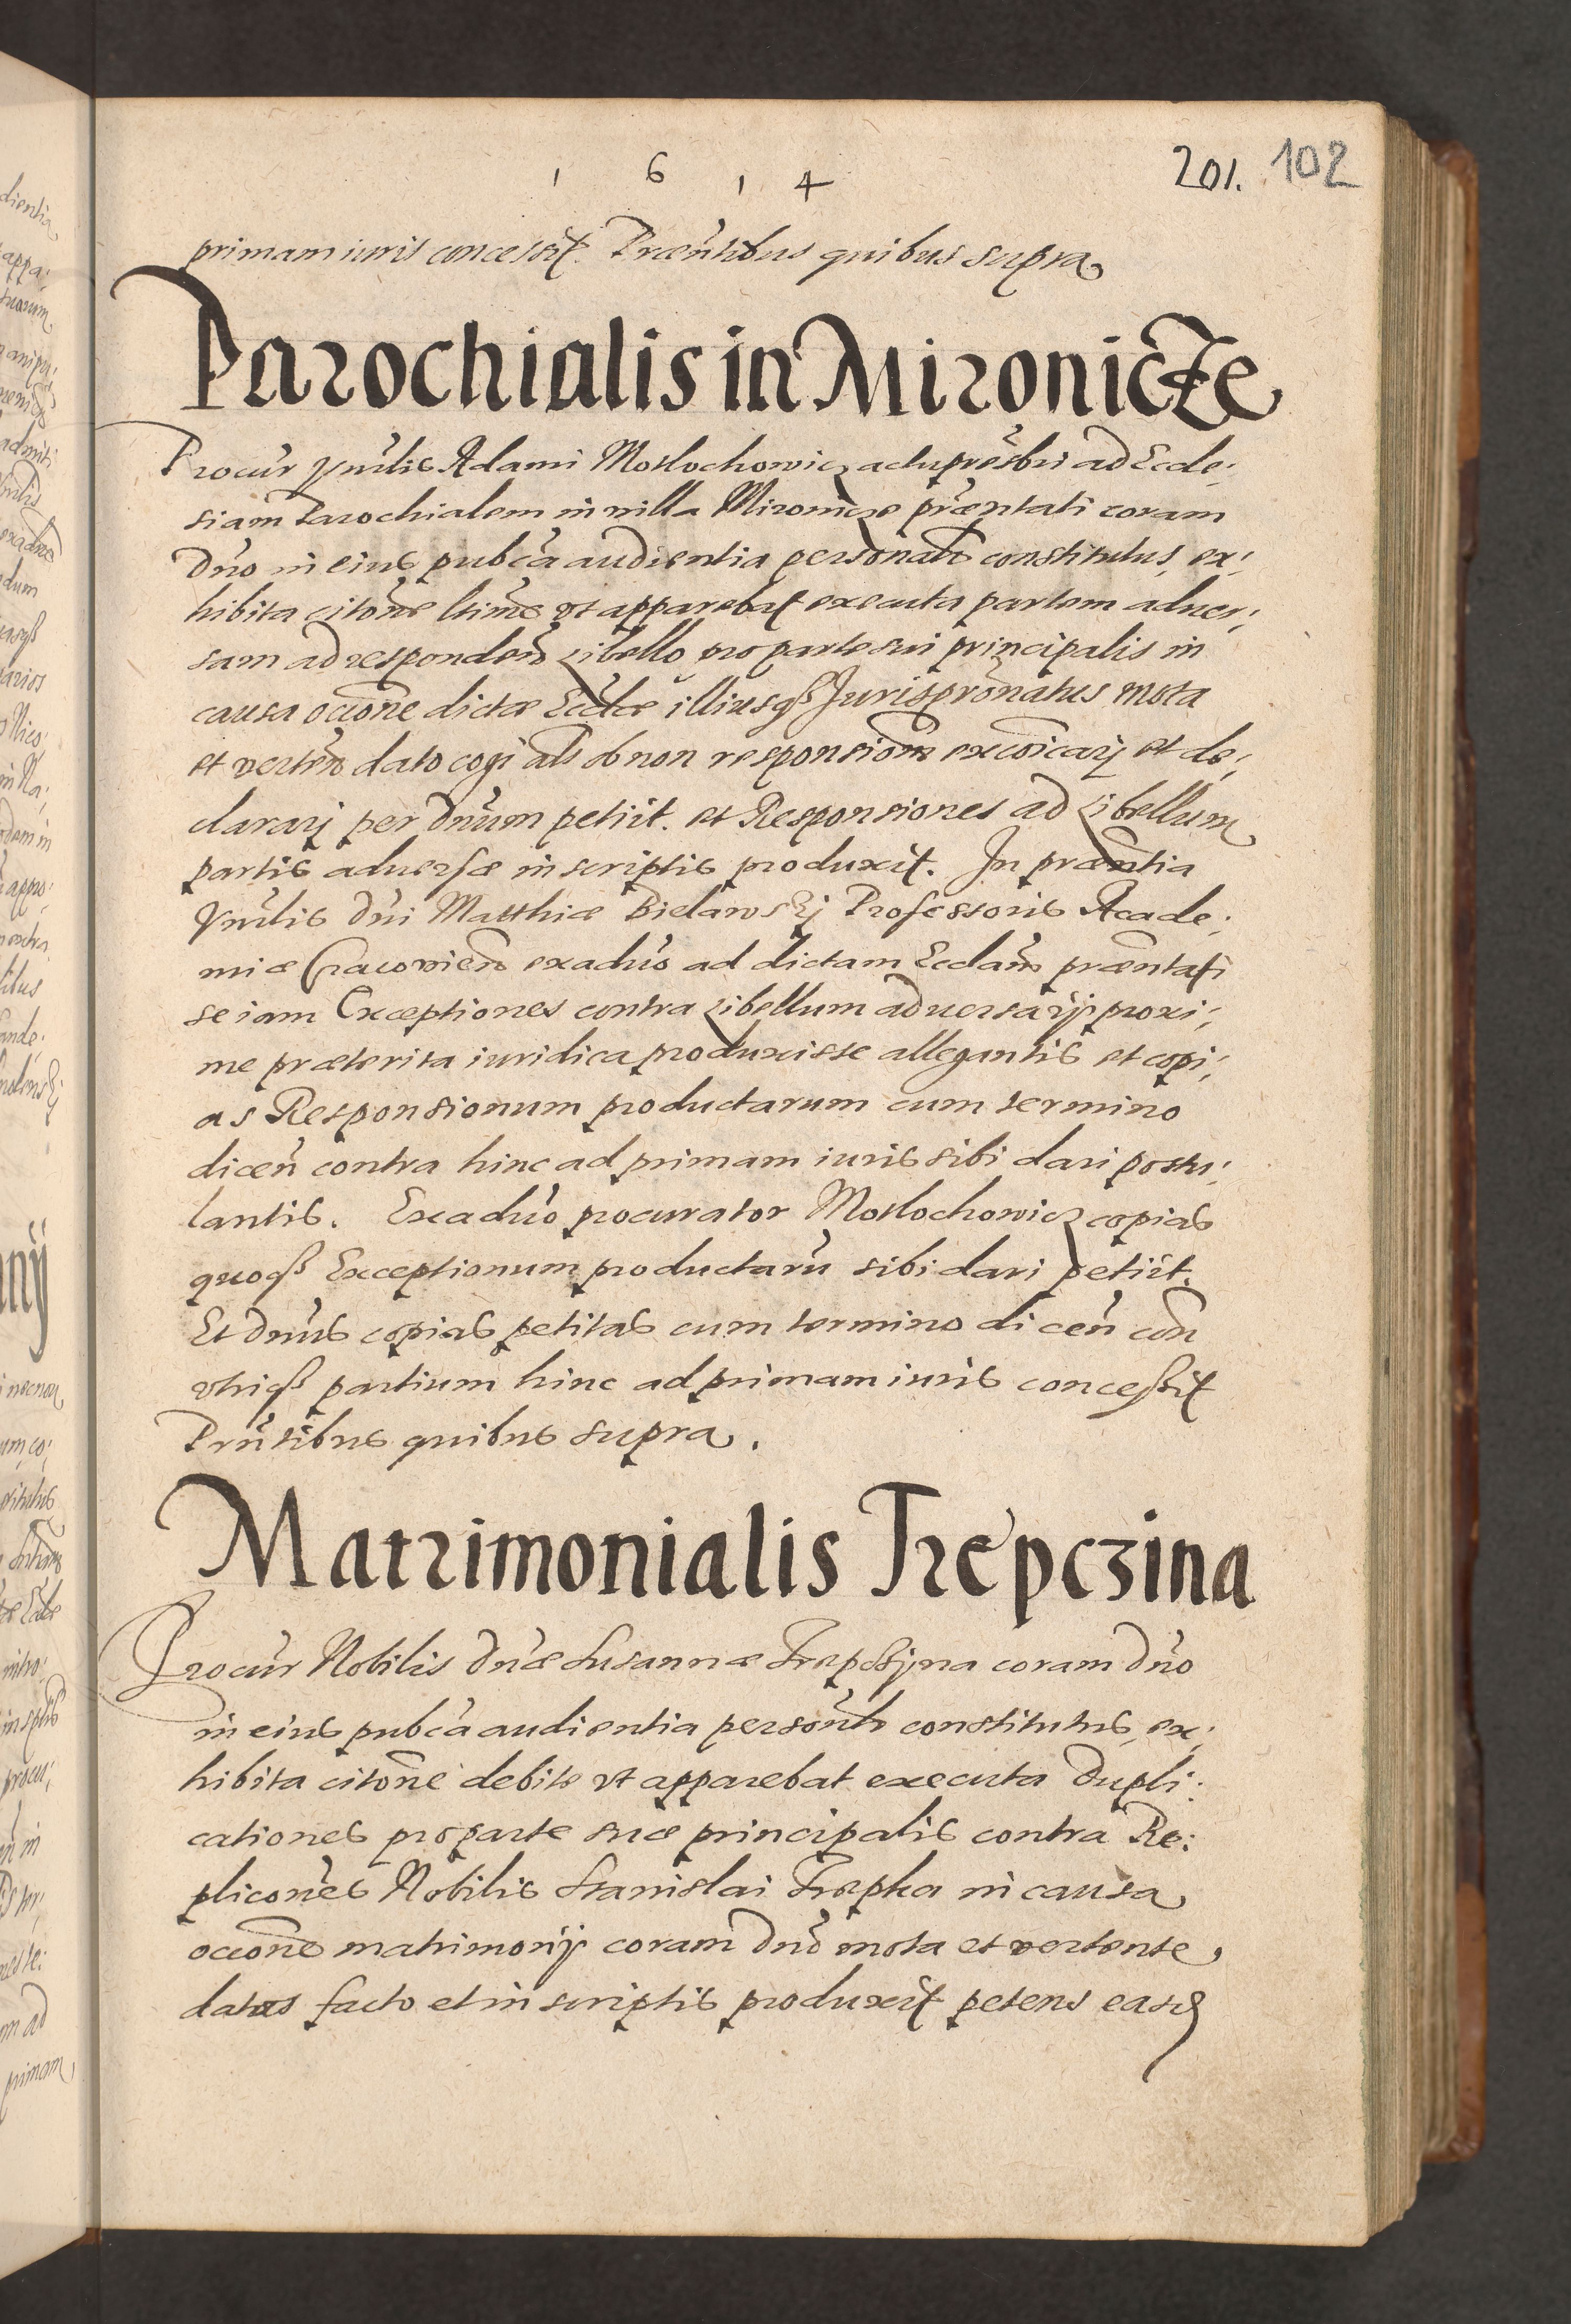 1 6 1 4
201. 102
primam iuris concessit. Præn̄tibus quibus supra
Parochialis in Mironicze
Procur̄ Vn̄rlis Adami Moslochowicz actu pręsbri ad Eccle;
siam Parochialem in villa Mironicze præn̄tati coram
Dn̄o in eius pubc̄a audientia personal̄r constitutus, ex;
hibita citōne ltīme vt apparebat executa partem aduer;
sam ad responden̄ Libello pro parte sui principalis in
causa occōne dictæ Eccl̄æ illiusqȝ Jurispr̄onatus mota
et verten̄ dato cogi als ob non responsiōm excōicarj et de;
clararj per Dn̄um petiit. et Responsiones ad Libellum
partis aduersæ in scriptis produxit. In præn̄tia
Vn̄rlis Dn̄i Matthiæ Bielawskj Professoris Acade;
miæ Cracovien̄ ex aduo ad dictam Eccl̄am præn̄tati
se iam Exceptiones contra Libellum aduersarij proxi;
me præterita iuridica produxisse allegantis et copi;
as Responsionum productarum cum termino
dicen̄ contra hinc ad primam iuris sibi dari postu;
lantis. Ex aduo procurator Moslochowicz copias
quoqȝ Exceptionum productarū sibi dari petiit.
Et Dn̄us copias petitas cum termino dicen̄ con̄
vtriqȝ partium hinc ad primam iuris concessit
Prn̄tibus quibus supra.
Matrimonialis Trepczina
Procur̄ Nobilis Dn̄æ Susannæ Trepczyna coram Dn̄o
in eius pubc̄a audientia person̄lr constitutus, ex;
hibita citōne debite vt apparebat executa Dupli;
cationes pro parte suæ principalis contra Re;
plicōnes Nobilis Stanislai Trepka in causa
occōne matrimonij coram Dn̄o mota et vertente
datus facto et in scriptis produxit petens easd